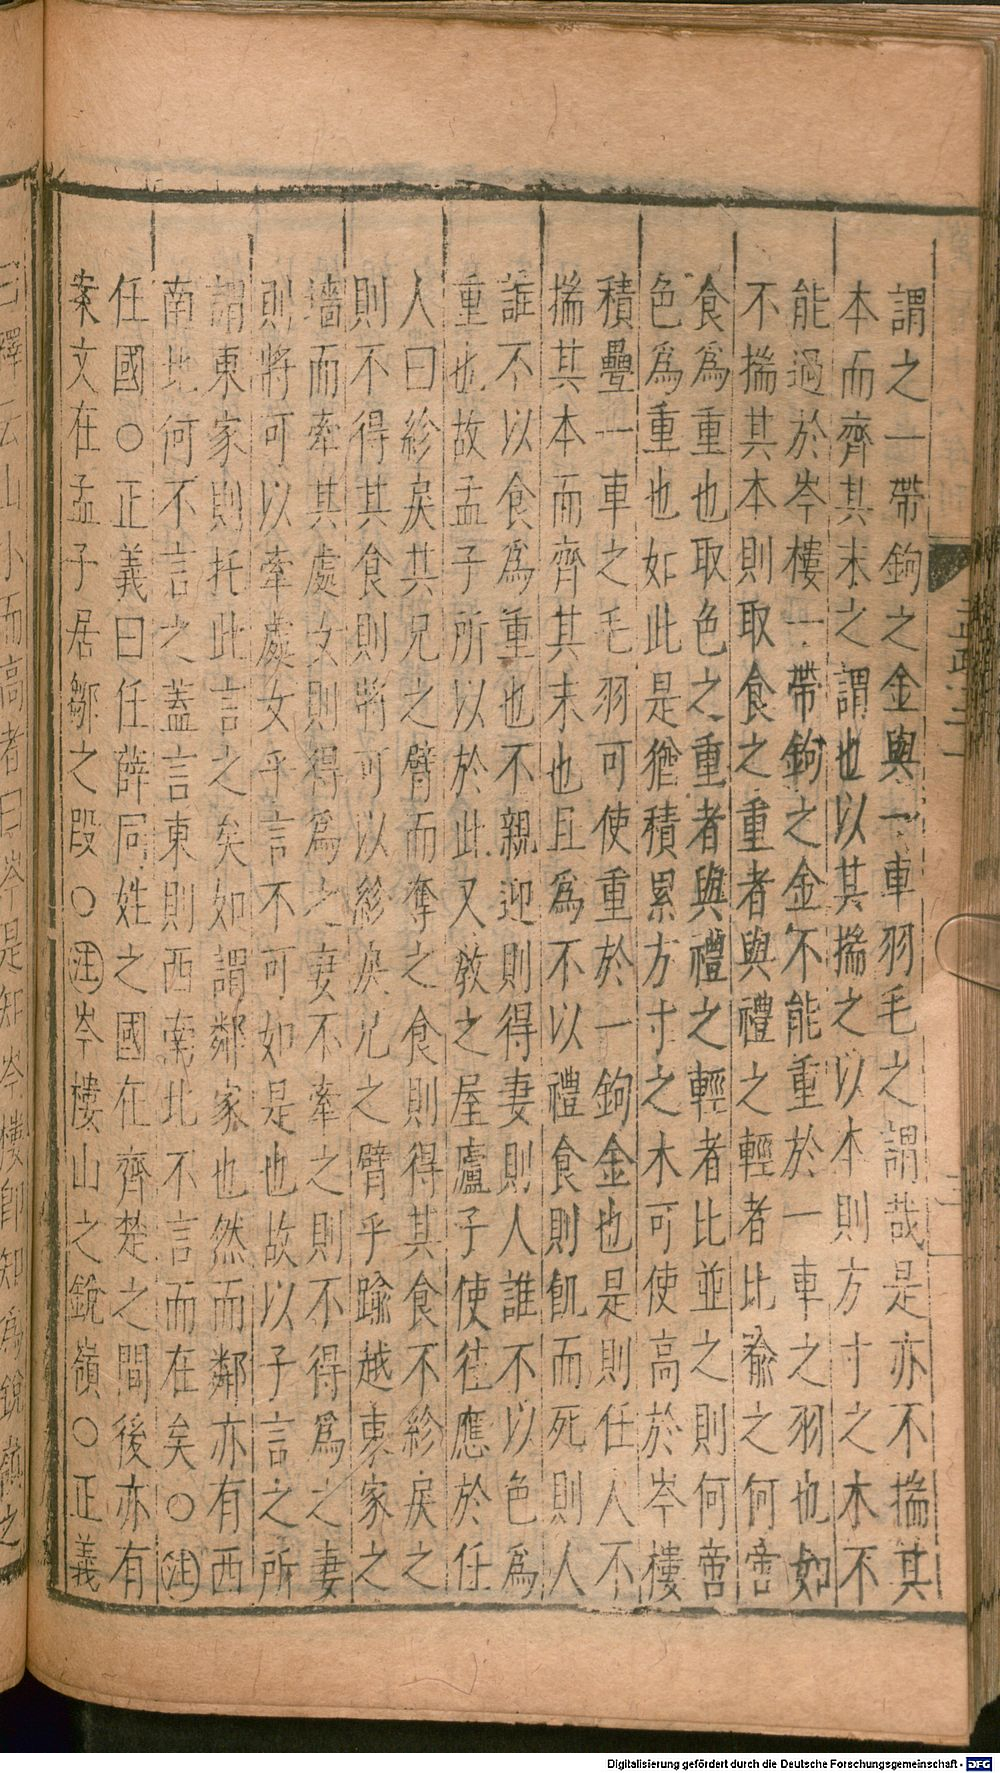 謂之一帶鉤之金與一車羽毛之謂哉是亦不揣其
本而齊其末之謂也以其揣之以本則方寸之木不
能過於岑樓一帶鉤之金不能重於一車之羽也如
不揣其本則取食之重者與禮之輕者比喻之何啻
食為重也取色之重者與禮之輕者比並之則何啻
色為重也如此是猶積累方寸之木可使高於岑樓
積疊一車之毛羽可使重於一鉤金也是則任人不
揣其本而齊其末也且為不以禮食則飢而死則人
誰不以食為重也不親迎則得妻則人誰不以色為
重也故孟子所以於此又教之屋廬子使往應於任
人曰紾戾其兄之臂而奪之食則得其食不紾戾之
則不得其食則將可以紾戾兄之臂乎踰越東家之
墻而牽其處女則得為之妻不牽之則不得為之妻
則將可以牽處女乎言不可如是也故以子言之所
謂東家則托此言之矣如謂鄰家也然而鄰亦有西
南北何不言之蓋言東則西南北不言而在矣○注
任國○正義曰任薛同姓之國在齊楚之間後亦有
案文在孟子居鄒之段○注岑樓山之銳嶺○正義
曰釋云山小而高者曰岑是知岑樓即知為銳嶺之
Digitalisierung gefördert durch die Deutsche Forschungsgemeinschaft - DFG